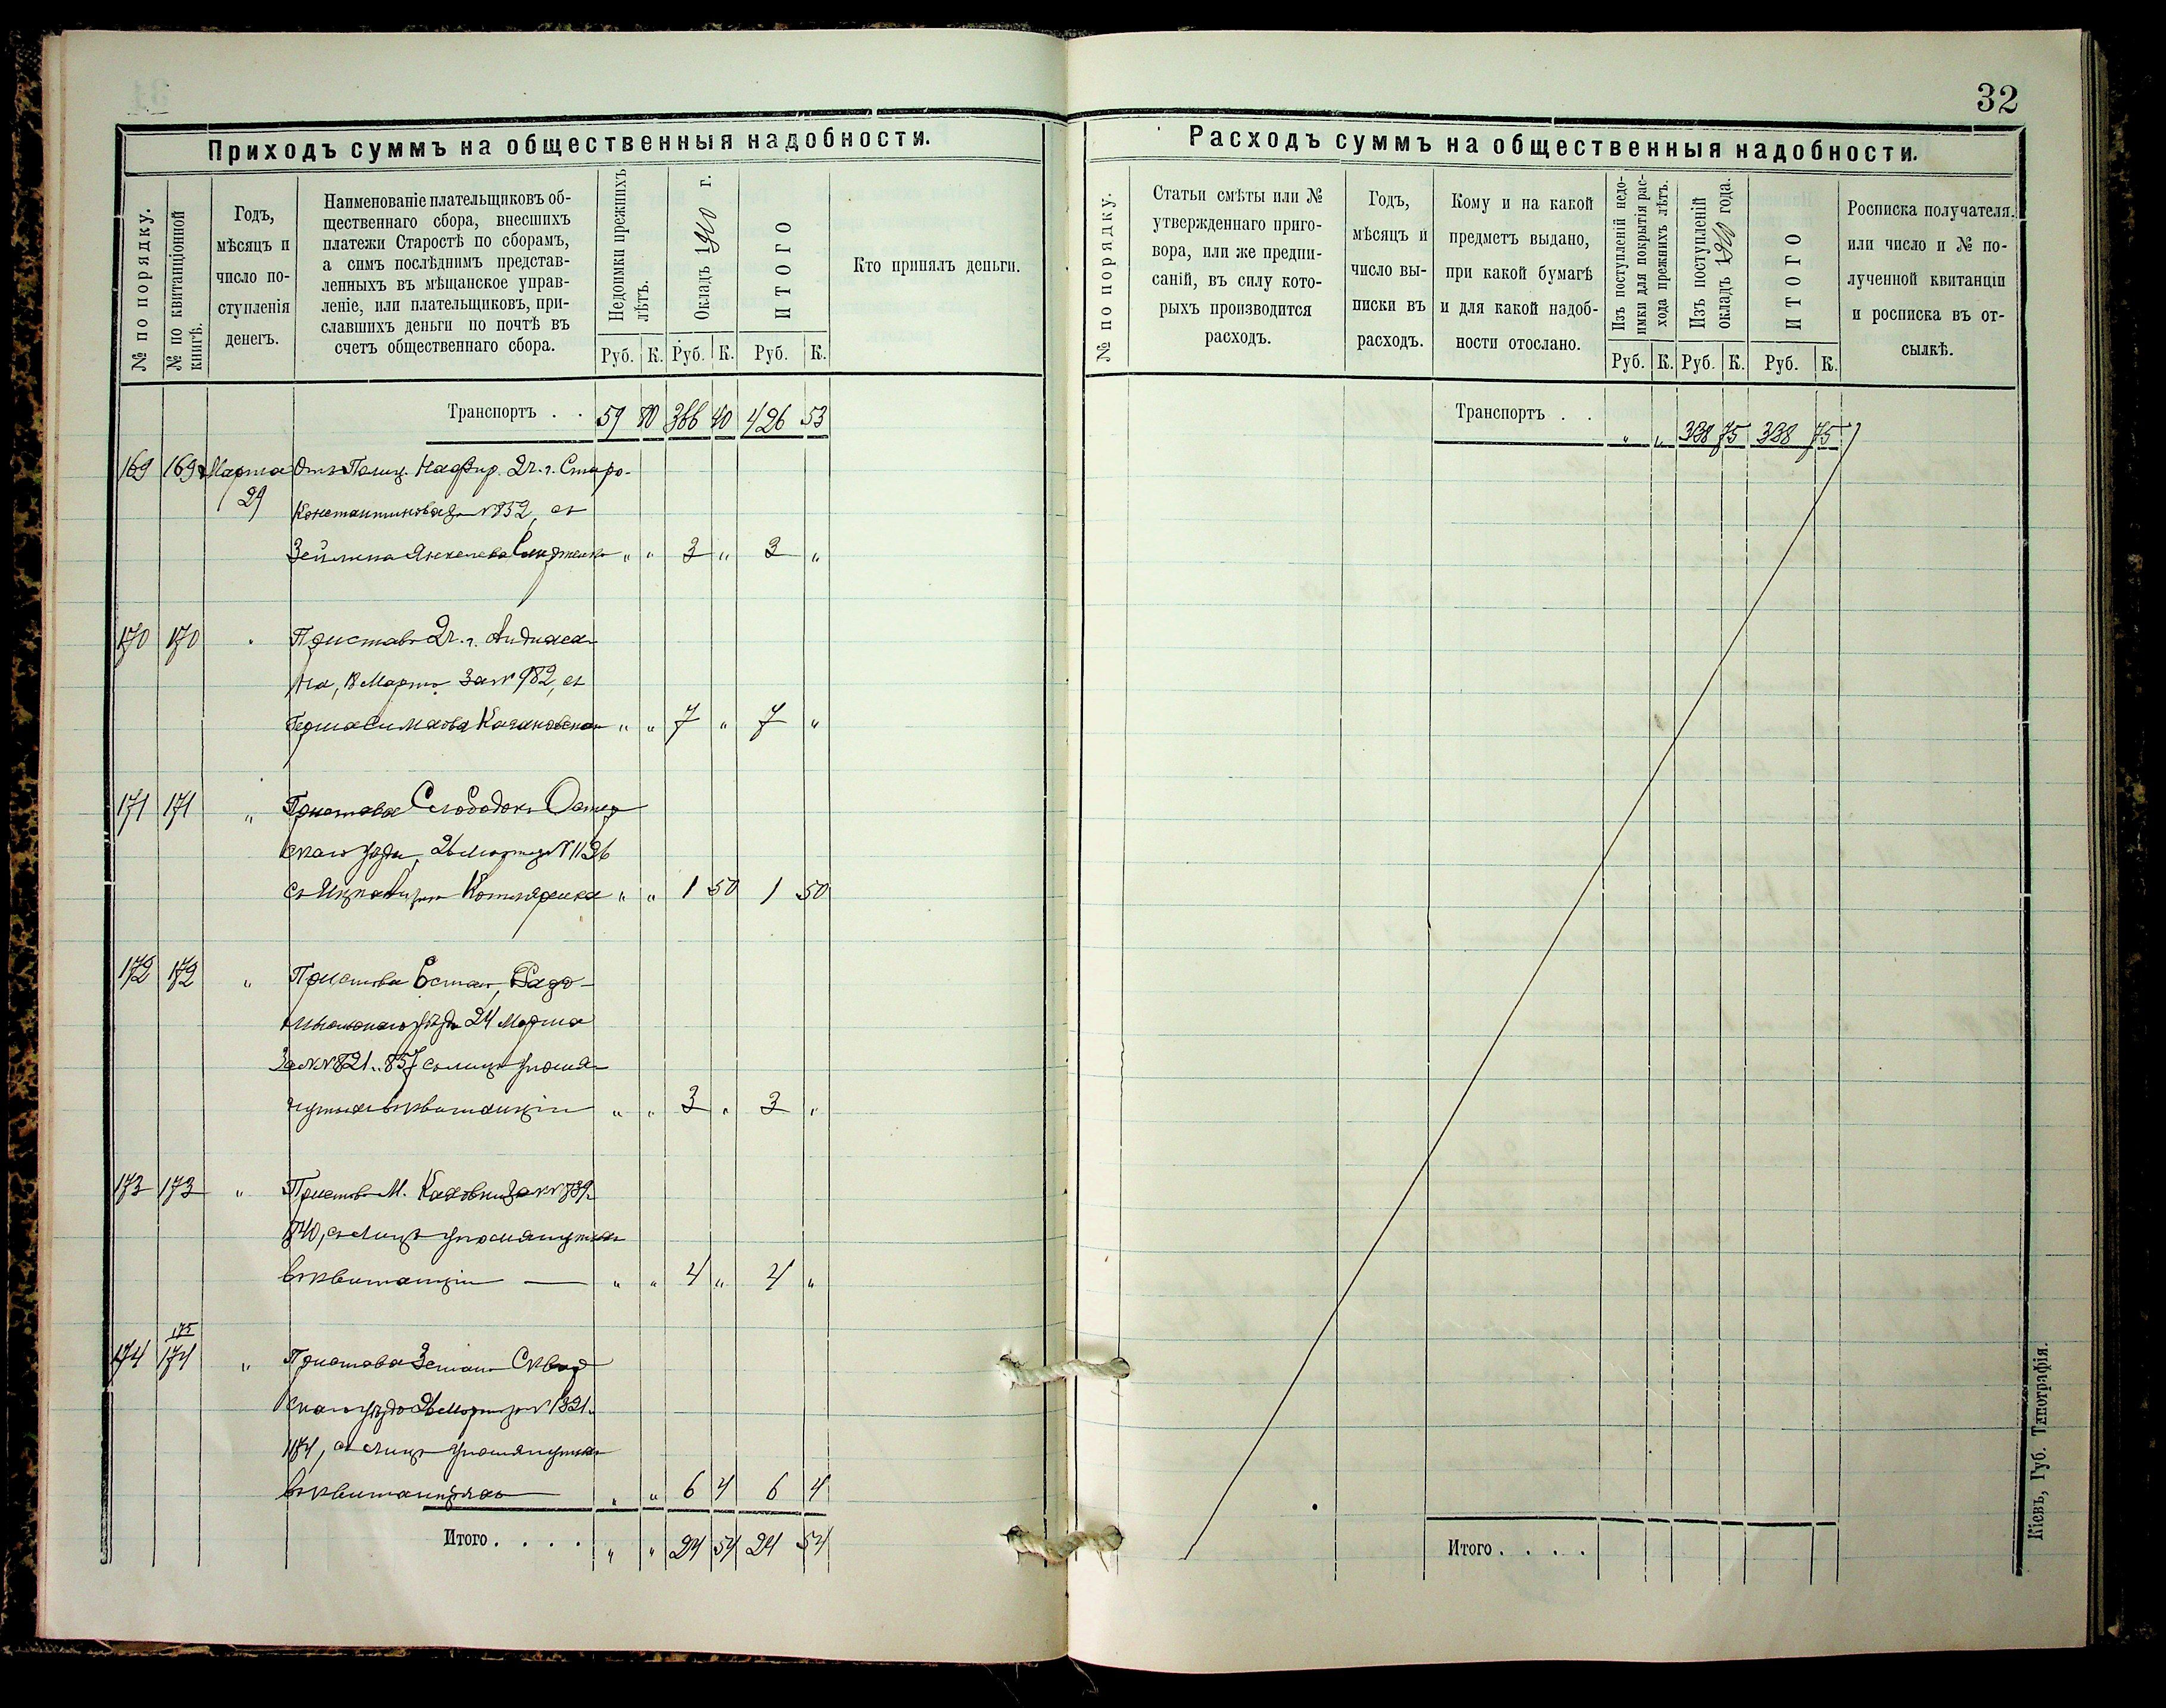 32
Приходъ суммъ на общественныя надобности.
№ по порядку.
№ по квитанціонной
книгѣ.
Годъ,
мѣсяцъ и
число по-
ступленія
денегъ.
Наименованіе плательщиковъ об-
щественнаго сбора, внесшихъ
платежи Старостѣ по сборамъ,
а симъ послѣднимъ представ-
ленныхъ въ мѣщанское управ-
леніе, или плательщиковъ, при-
славшихъ деньги по почтѣ въ
счетъ общественнаго сбора.
Недоимки прежнихъ
лѣтъ.
Окладъ 1910 г.
ИТОГО
Кто принялъ деньги.
Руб. К. Руб. К. Руб. К.
Транспортъ . . 59 386 40 426 53
169 169 Марта Отъ Полиц. 2 ч. г. Старо-
29 Константинова за № 852, съ
" " 3 " 3 "
170 170 Пристава 2 ч. г.
на, Марта за № 982, съ
" " 7 " 7 "
171 171 " Пристава Слободокъ Остер
скаго уѣзда, 26 Марта № 1126
съ " " 1 50 1 50
172 172 " Пристава 6 стана, Радо-
мысльскаго уѣзда 24 Марта
за № № 821 и 857 съ лицъ упомя-
нутыхъ въ квитанціи " " 3 " 3 "
173 173 " Пристава М. Каховки за № № 839 и
840, съ лицъ упомянутыхъ
въ квитанціи — " " 4 " 4 "
175
174 174 " Пристава 3 стана Сквир
скаго уѣзда 26 Марта за № 1321 и
1174, съ лицъ упомянутыхъ
въ квитанціяхъ " " 6 4 6 4
Итого . . . . " " 24 54 24 54
Расходъ суммъ на общественныя надобности.
№ по порядку.
Статьи смѣты или №
утвержденнаго приго-
вора, или же предпи-
саній, въ силу кото-
рыхъ производится
расходъ.
Годъ,
мѣсяцъ и
число вы-
писки въ
расходъ.
Кому и на какой
предметъ выдано,
при какой бумагѣ
и для какой надоб-
ности отослано.
Изъ поступленій недо-
имки для покрытія рас-
хода прежнихъ лѣтъ.
Изъ поступленій
окладъ 1910 года.
ИТОГО
Росписка получателя,
или число и № по-
лученной квитанціи
и росписка въ от-
сылкѣ.
Руб. К. Руб. К. Руб. К.
Транспортъ . . " " 388 75 388 75
Итого . . . .
Кіевъ, Губ. Типографія.